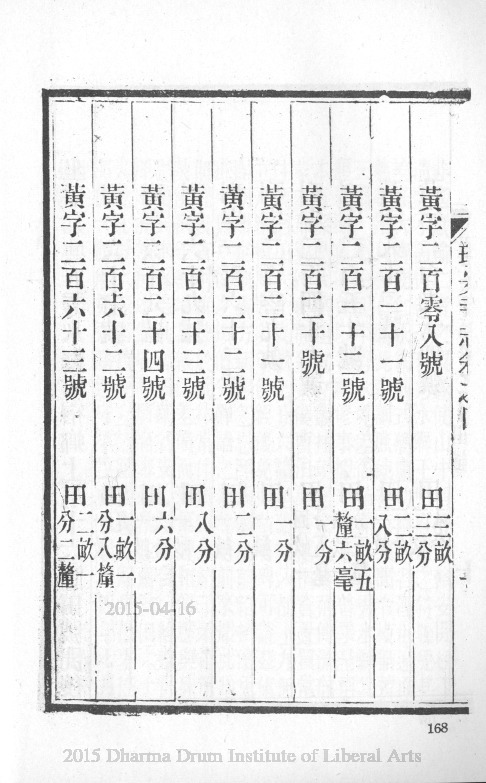 黃字二百零八號 田三畝三分
黃字二百一十一號 田二畝八分
黃字二百一十二號 田一畝五釐六毫
黃字二百二十號 田一分
黃字二百二十一號 田一分
黃字二百二十二號 田二分
黃字二百二十三號 田八分
黃字二百二十四號 田六分
黃字二百六十二號 田一畝一分八釐
黃字二百六十三號 田二畝一分二釐
2015-04-16
168
2015 Dharma Drum Institute of Liberal Arts